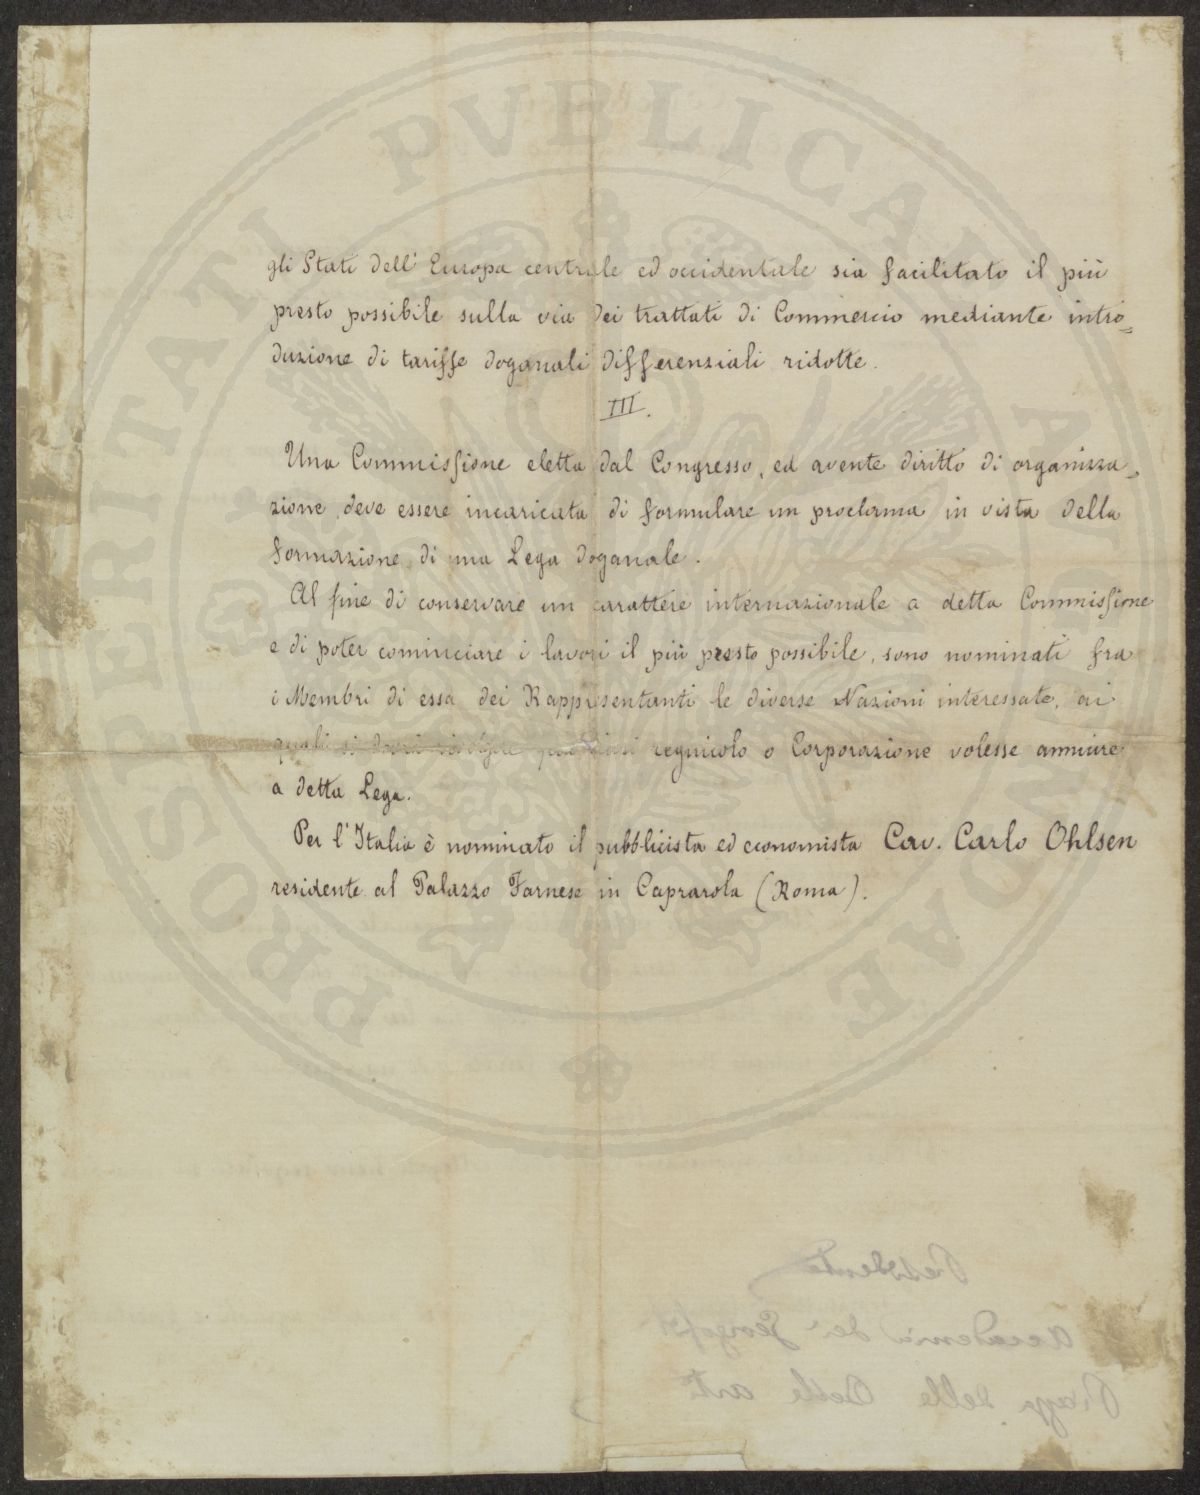 gli Stati dell' Europa centrale ed occidentale sia facilitato il più
presto possibile sulla via dei trattati di Commercio mediante intro=
duzione di tariffe doganali differenziali ridotte.
III.
Una Commissione eletta dal Congresso, ed avente diritto di organizza=
zione, deve essere incaricata di formulare un proclama in vista della
formazione di una Lega doganale.
Al fine di conservare un carattere internazionale a detta Commissione
e di poter cominciare i lavori il più presto possibile, sono nominati fra
i Membri di essa dei Rappresentanti le diverse Nazioni interessate, ai
quali si dovrà rivolgere qualsiasi regnicolo o Corporazione volesse annuire
a detta Lega.
Per l'Italia è nominato il pubblicista ed economista Cav. Carlo Ohlsen
residente al Palazzo Farnese in Caprarola (Roma).
PROSPERITATI PVBLICAE AVGENDAE
Presidente
Accademia dei Georgofili
delle Belle arti